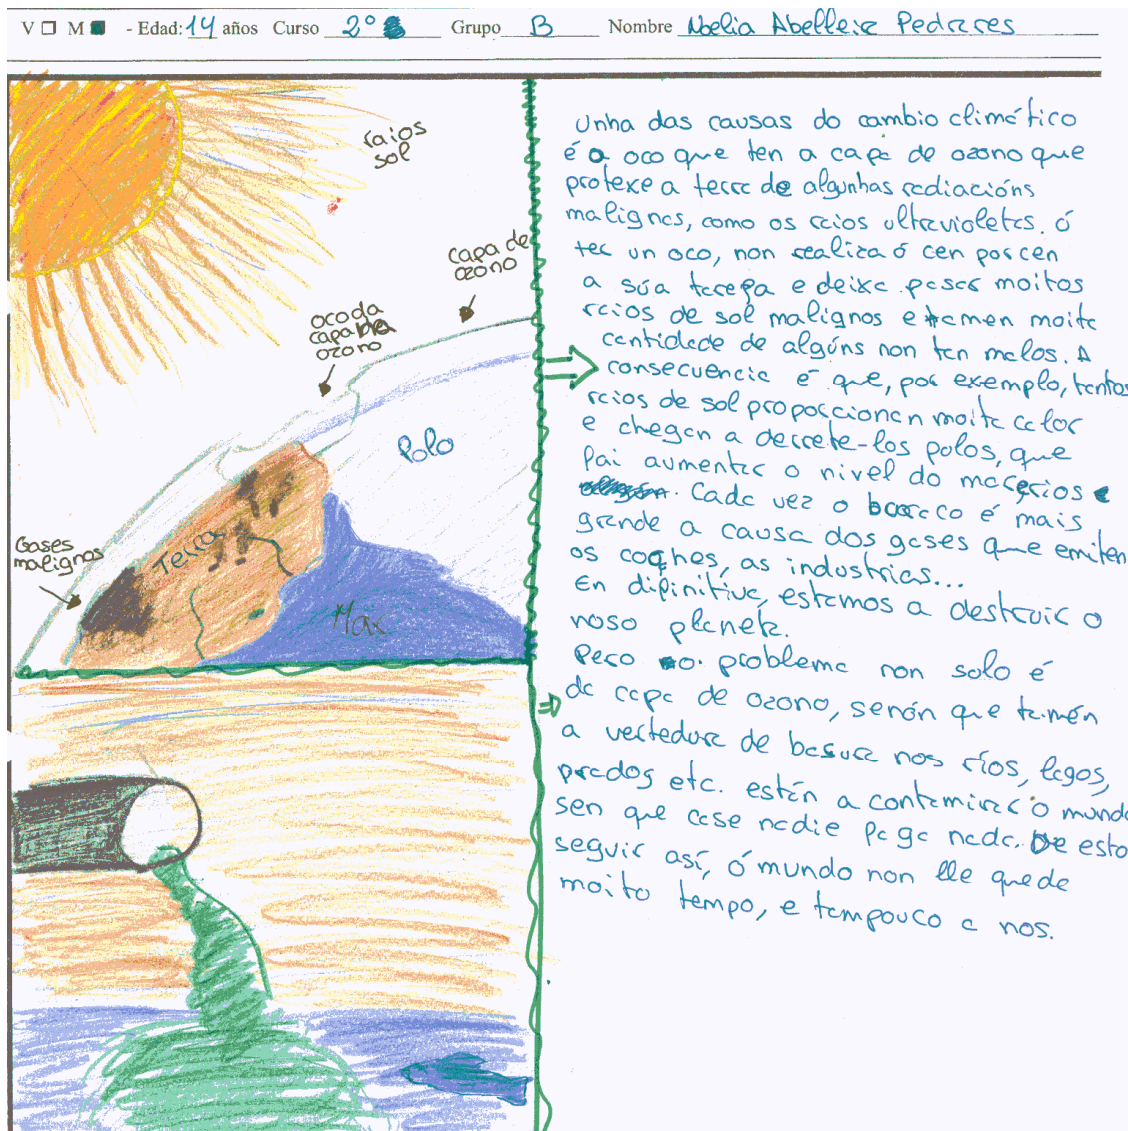 V M - Edad: 14 años Curso 2º Grupo B Nombre Noelia Abelleira Pedrares
raios
sol
capa de
ozono
oco da
capa de
ozono
Polo
Gases
malignos
Terra
Mar
Unha das causas do cambio climático
é o oco que ten a capa de ozono que
protexe a terra de algunhas radiacións
malignas, como os raios ultravioletas. ó
ter un oco, non realiza ó cen por cen
a súa tarefa e deixa pasar moitos
raios de sol malignos e tamen moita
cantidade de algúns non tan malos. A
consecuencia é que, por exemplo, tantos
raios de sol proporcionan moita calor
e chegan a derrete-los polos, que
fai aumentar o nivel do mar, e ríos
. Cada vez o burato é mais
grande a causa dos gases que emiten
os coches, as industrias...
En difinitiva, estamos a destruir o
noso planeta.
Pero o problema non solo é
da capa de ozono, senón que tamén
a vertedura de basura nos ríos, lagos,
prados etc. están a contaminar o mundo
sen que case nadie faga nada. De esto
seguir así, ó mundo non lle queda
moito tempo, e tampouco a nos.